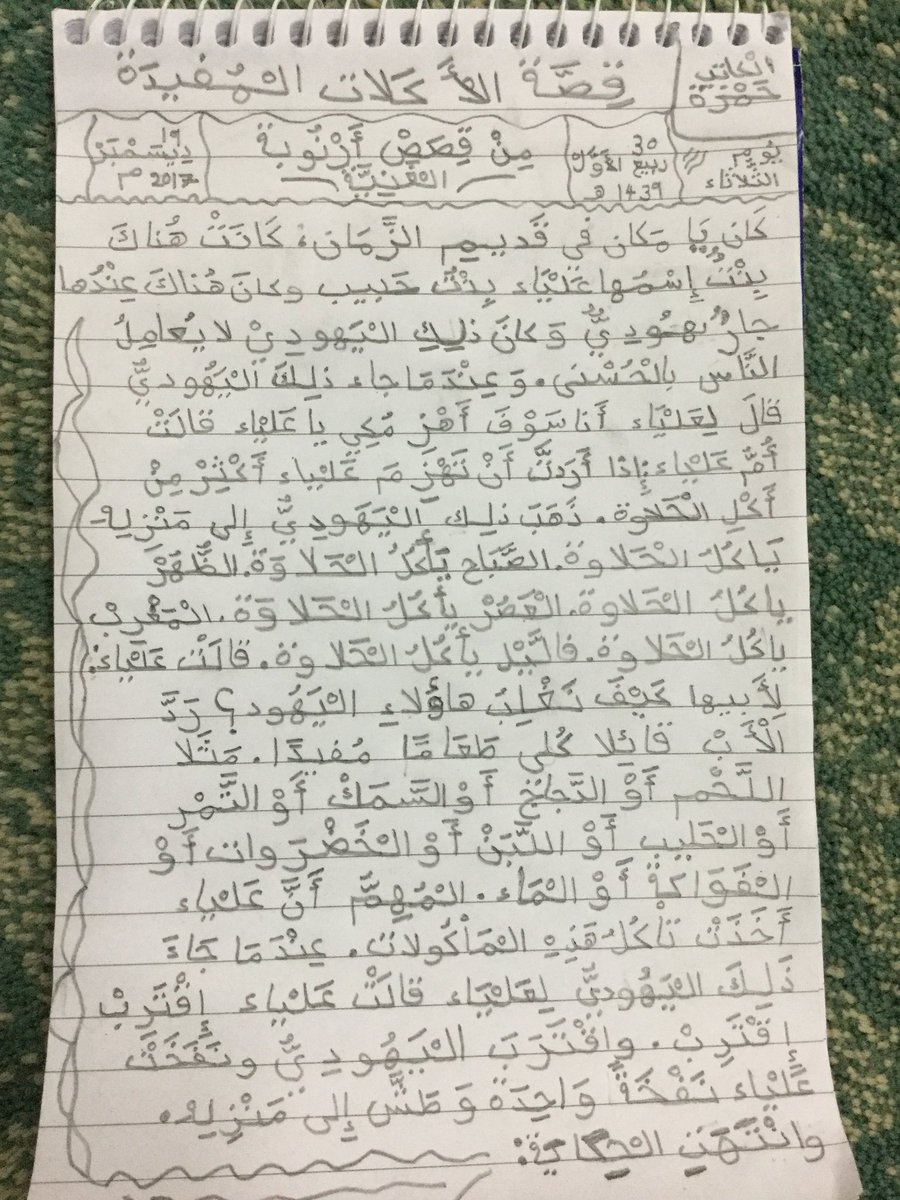 الكاتب
حمزة
قِصَّة الأَكَلات المُفيدَة
يَوْم
الثلاثاء
30
ربيع الأوّل
1439 هـ
مِنْ قِصَصْ أَرْنُوبة
الغَنِيَّة
19
دِيسَمْبَر
2017 م
كَان يَا مَكان في قَديمِ الزَّمَان، كَانَتْ هُناكَ
بِنْتٌ إِسْمُها عَلْيَاء بِنْتُ حَبيب وكانَ هُناكَ عِنْدُها
جارٌ يَهُودِيٌّ وَكانَ ذلِكِ الْيَهودِيْ لا يُعامِلُ
النَّاس بِالْحُسْنى. وَعِنْدَمَا جاء ذلِكَ الْيَهُودِيُّ
قالَ لِعَلْيَاء أَنا سَوْفَ أَهْزِمُكِي يا عَلْياء قالَتْ
أُمُّ عَلْيَاء: إذا أَرَدْتَّ أَنْ تَهْزِمَ عَلْياء أَكْثِرْ مِنْ
أَكْلِ الْحَلاوة. ذَهَبَ ذلِك الْيَهودِيُّ إلى مَنْزِلِه
يَاكُلُ الْحَلاوة. الصَّباح يَأْكُلُ الْحَلاوَة. الظُّهْرْ
ياكُلُ الْحَلاوة. الْعَصْرْ يأْكُلُ الْحَلاوَة. الْمَغْرِبْ
ياكُلُ الْحَلاوة. فالَّيْل يأْكُلُ الْحَلاوة. قالَتْ عَلْياء:
لأَبيها كَيْفَ نَغْلِبُ هاؤلاءِ الْيَهُود؟ رَدَّ
الْأَبْ قائلا كُلي طَعَامًا مُفيدًا. مَثَلا
اللَّحْم أَوْ الدَّجاجْ أَوْ السَّمَكْ أَوْ التَّمْر
أَوْ الْحَليب أَوْ اللَّبَنْ أَوْ الْخَضْرَوات أَوْ
الْفَوَاكهْ أَوْ الْمَاء. الْمُهِمُّ أَنَّ عَلْياء
أَخَذَتْ تأْكُلُ هَذِهِ الْمأْكُولاتْ. عِنْدَمَا جَاءَ
ذَلِكَ الْيَهُودِيُّ لِعَلْيَاء قالَتْ عَلْياء اقْتَرِبْ
اقْتَرِبْ. واقْتَرَبَ الْيَهُودِيُّ ونَفَخَتْ
عَلْيَاء نَفْخَةً وَاحِدَة وَطَشَّ إلى مَنْزِلِه.
وانْتَهَتِ الْحِكاية.